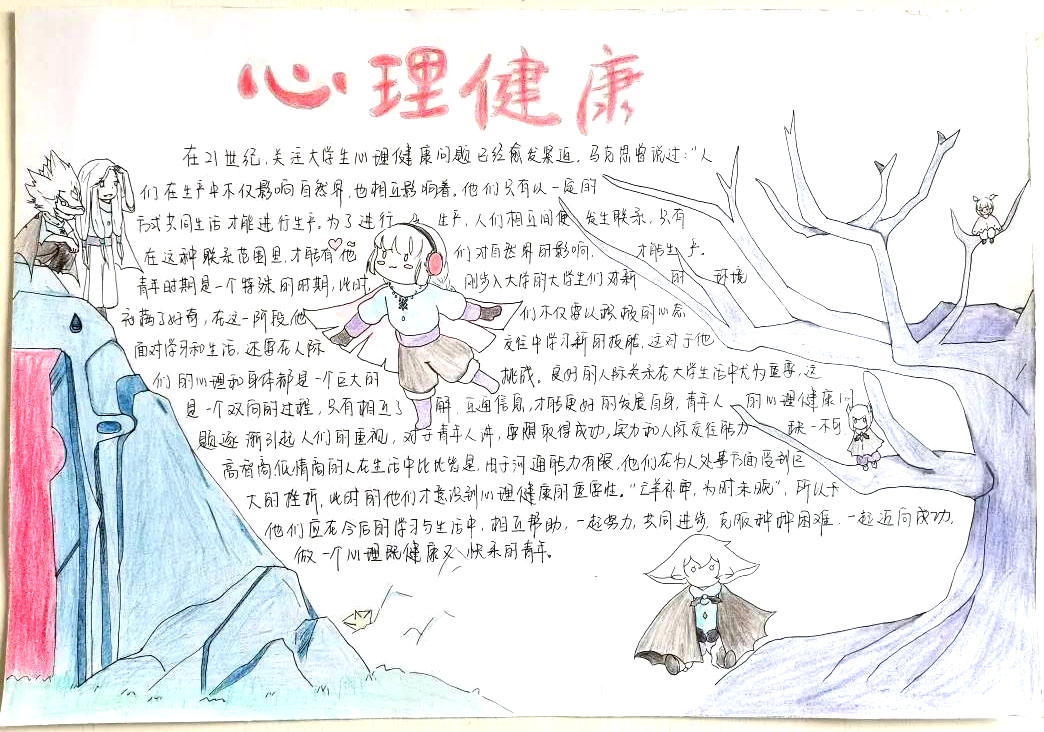 心理健康
在21世纪,关注大学生心理健康问题已经愈发紧迫。马克思曾说过:“人
们在生产中不仅影响自然界,也相互影响着。他们只有以一定的
方式共同生活才能进行生产。为了进行 生产,人们相互间便 发生联系,只有
在这种联系范围里,才能有他 们对自然界的影响, 才能生产。
青年时期是一个特殊的时期,此时 刚步入大学的大学生们对新 的 环境
充满了好奇,在这一阶段他 们不仅要以积极的心态
面对学习和生活,还要在人际 交往中学习新的技能,这对于他
们的心理和身体都是一个巨大的 挑战。良好的人际关系在大学生活中尤为重要,这
是一个双向的过程,只有相互了 解、互通信息,才能更好的发展自身,青年人 的心理健康问
题逐渐引起人们的重视,对于青年人来,要想取得成功,实力和人际交往能力 缺一不可
高智商低情商的人在生活中比比皆是,由于沟通能力有限,他们在为人处事方面受到巨
大的挫折,此时的他们才意识到心理健康的重要性。“亡羊补牢,为时未晚”,所以
他们应在今后的学习与生活中,相互帮助,一起努力,共同进步,克服种种困难,一起迈向成功,
做一个心理既健康又快乐的青年。